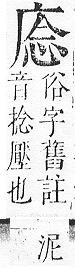 俗字舊註
音捻壓也
泥